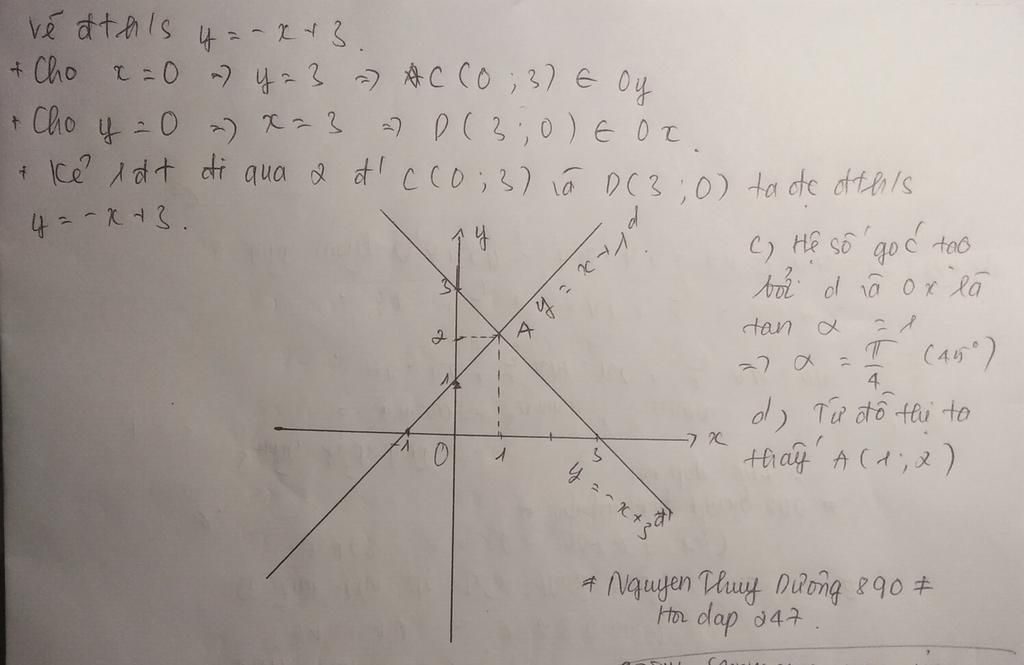 vẽ đths y = -x + 3.
+ Cho x = 0 => y = 3 => C(0 ; 3) ∈ Oy
+ Cho y = 0 => x = 3 => D(3 ; 0) ∈ Ox.
+ Kẻ 1 đt đi qua 2 đ' C(0 ; 3) và D(3 ; 0) ta đc đths
y = -x + 3.
y
3
2
1
-1
O
1
3
x
A
y = x + 1
d
y = -x + 3
d'
c, Hệ số góc tạo
bởi d và Ox là
tan α = 1
=> α = π/4 (45°)
d, Từ đồ thị ta
thấy A(1 ; 2)
≠ Nguyen Thuy Dương 890 ≠
Hoi dap 247.